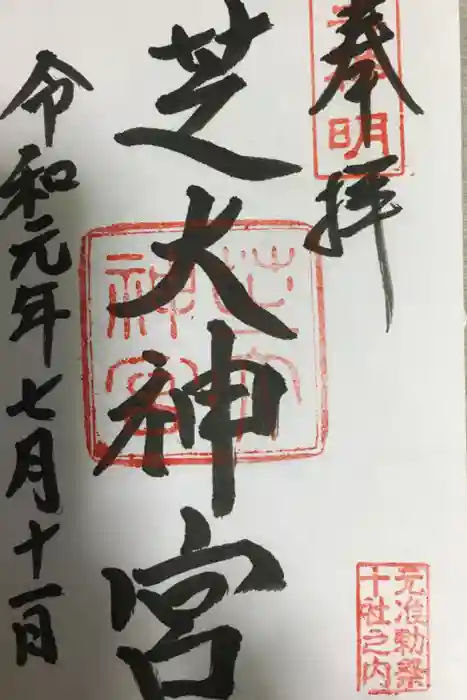 奉拝
神明
芝大神宮
芝大神宮
令和元年七月十一日
元准勅祭
十社之内